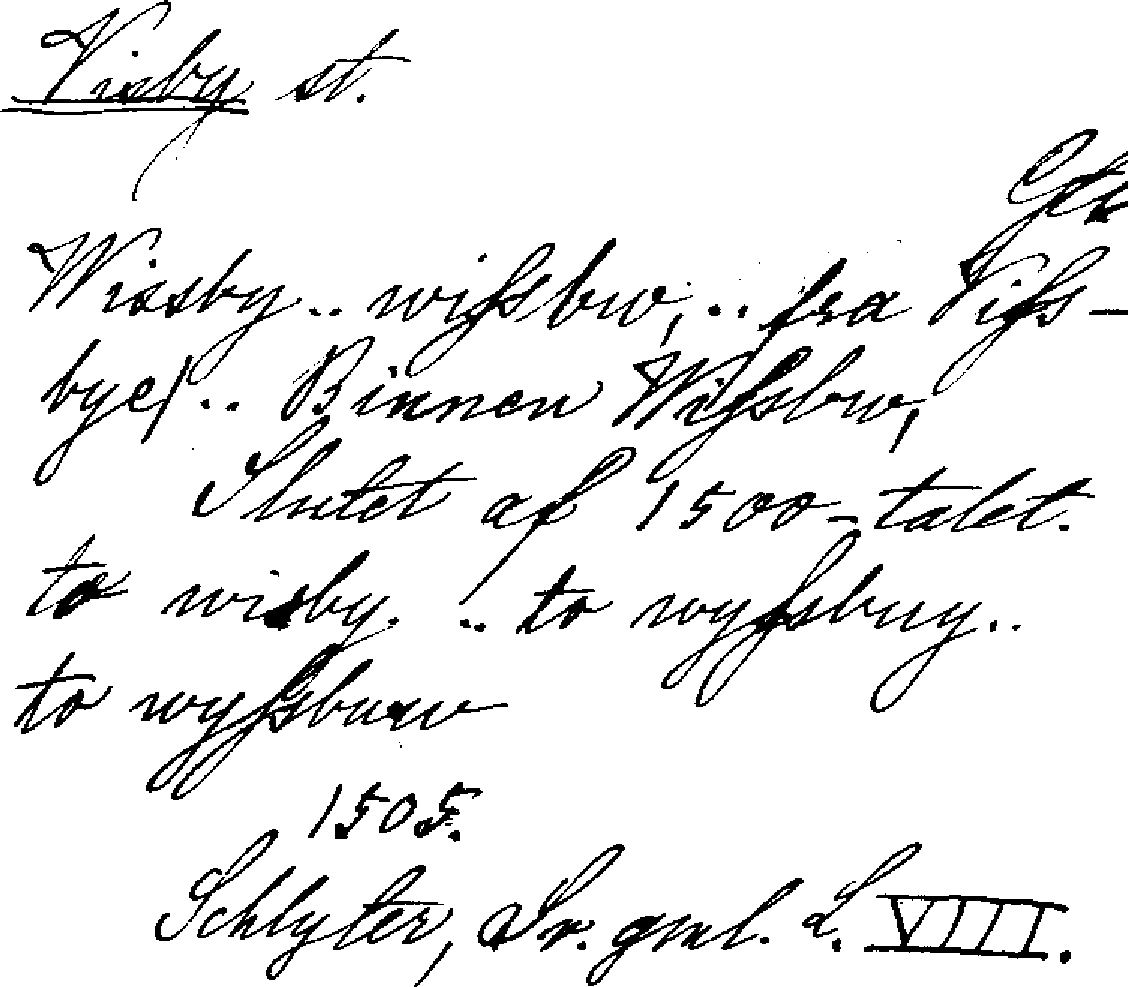 Visby st.
Gtl
Wissby .. wissbw, .. fra Viss-
bye) .. Binnen Wissbw,
Slutet af 1500-talet.
to wisby. .. to wyssbuy ..
to wyssbuw
1505.
Schlyter, Sv. gml. L. VIII.